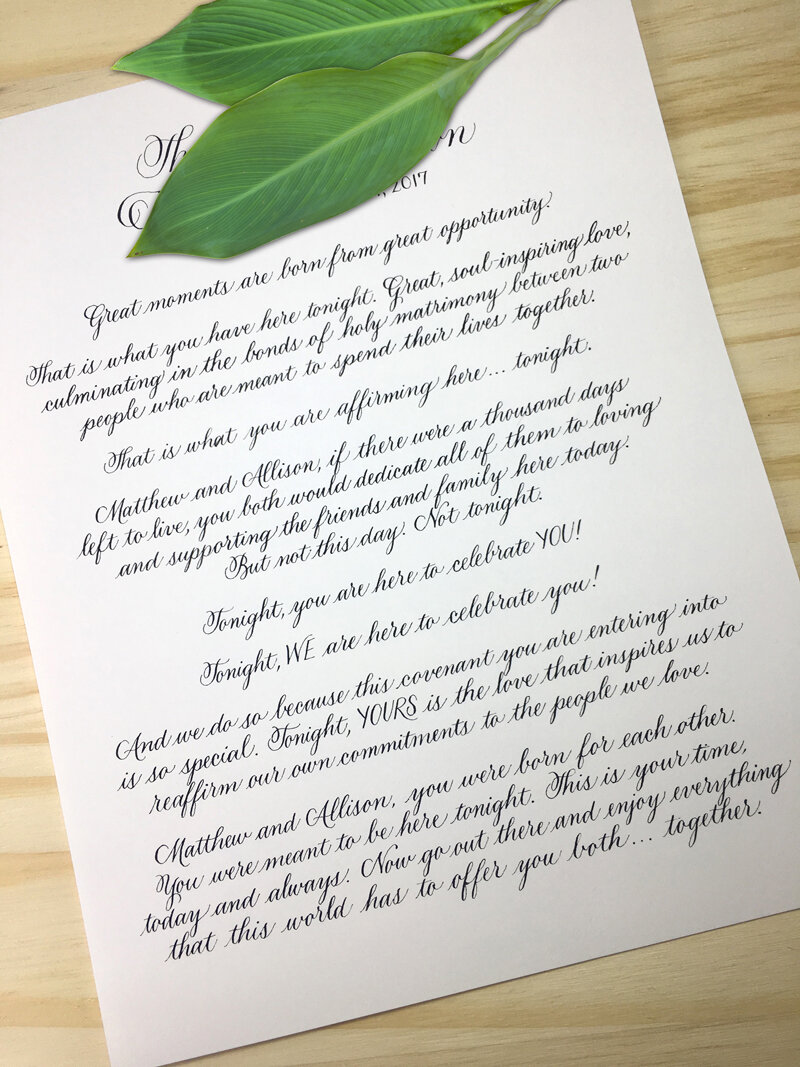 2017
Great moments are born from great opportunity.
That is what you have here tonight. Great, soul-inspiring love,
culminating in the bonds of holy matrimony between two
people who are meant to spend their lives together.
That is what you are affirming here... tonight.
Matthew and Allison, if there were a thousand days
left to live, you both would dedicate all of them to loving
and supporting the friends and family here today.
But not this day. Not tonight.
Tonight, you are here to celebrate YOU!
Tonight, WE are here to celebrate you!
And we do so because this covenant you are entering into
is so special. Tonight, YOURS is the love that inspires us to
reaffirm our own commitments to the people we love.
Matthew and Allison, you were born for each other.
You were meant to be here tonight. This is your time,
today and always. Now go out there and enjoy everything
that this world has to offer you both... together.